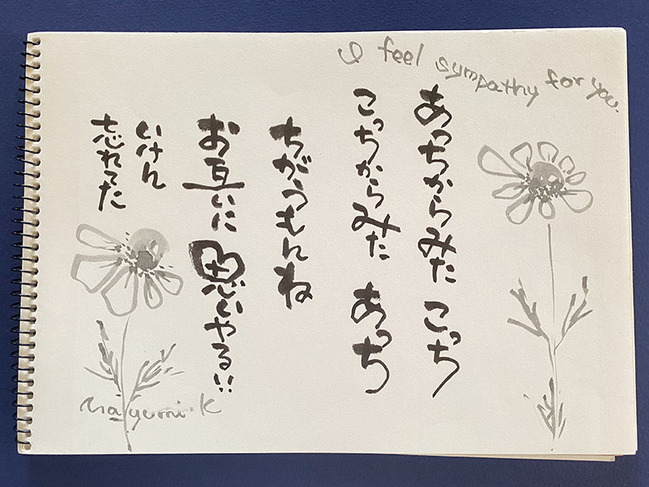 I feel sympathy for you.
あっちからみた こっち
こっちからみた あっち
ちがうもんね
お互いに 思いやる!!
いけん
忘れてた
Mayumi.K